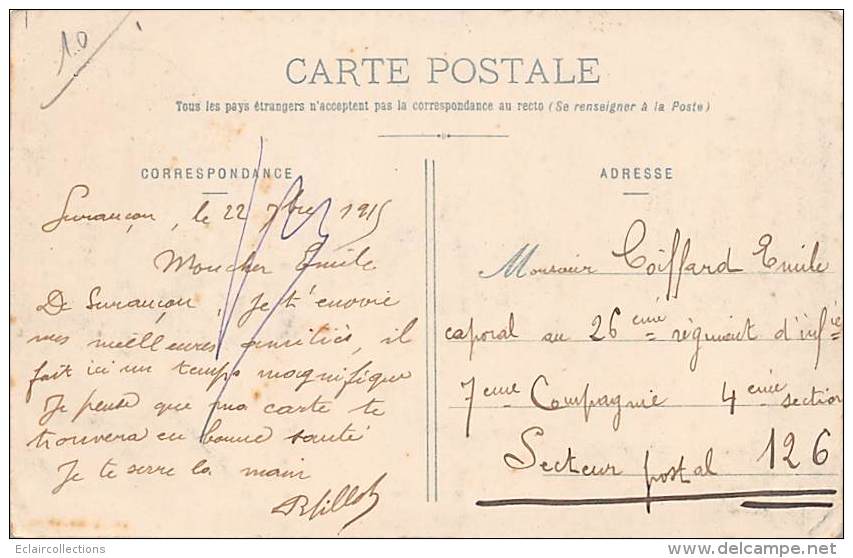 10
CARTE POSTALE
Tous les pays étrangers n'acceptent pas la correspondance au recto (Se renseigner à la Poste)
CORRESPONDANCE
ADRESSE
le 22 7bre 1915
Mon cher Emile
De Surançon, je t'envoie
mes meilleures amitiés, il
fait ici un temps magnifique
Je pense que ma carte te
trouvera en bonne santé
Je te serre la main
Monsieur Coiffard Emile
caporal au 26 eme régiment d'infie
7eme Compagnie 4eme section
Secteur postal 126
Eclaircollections
©delcampe.net